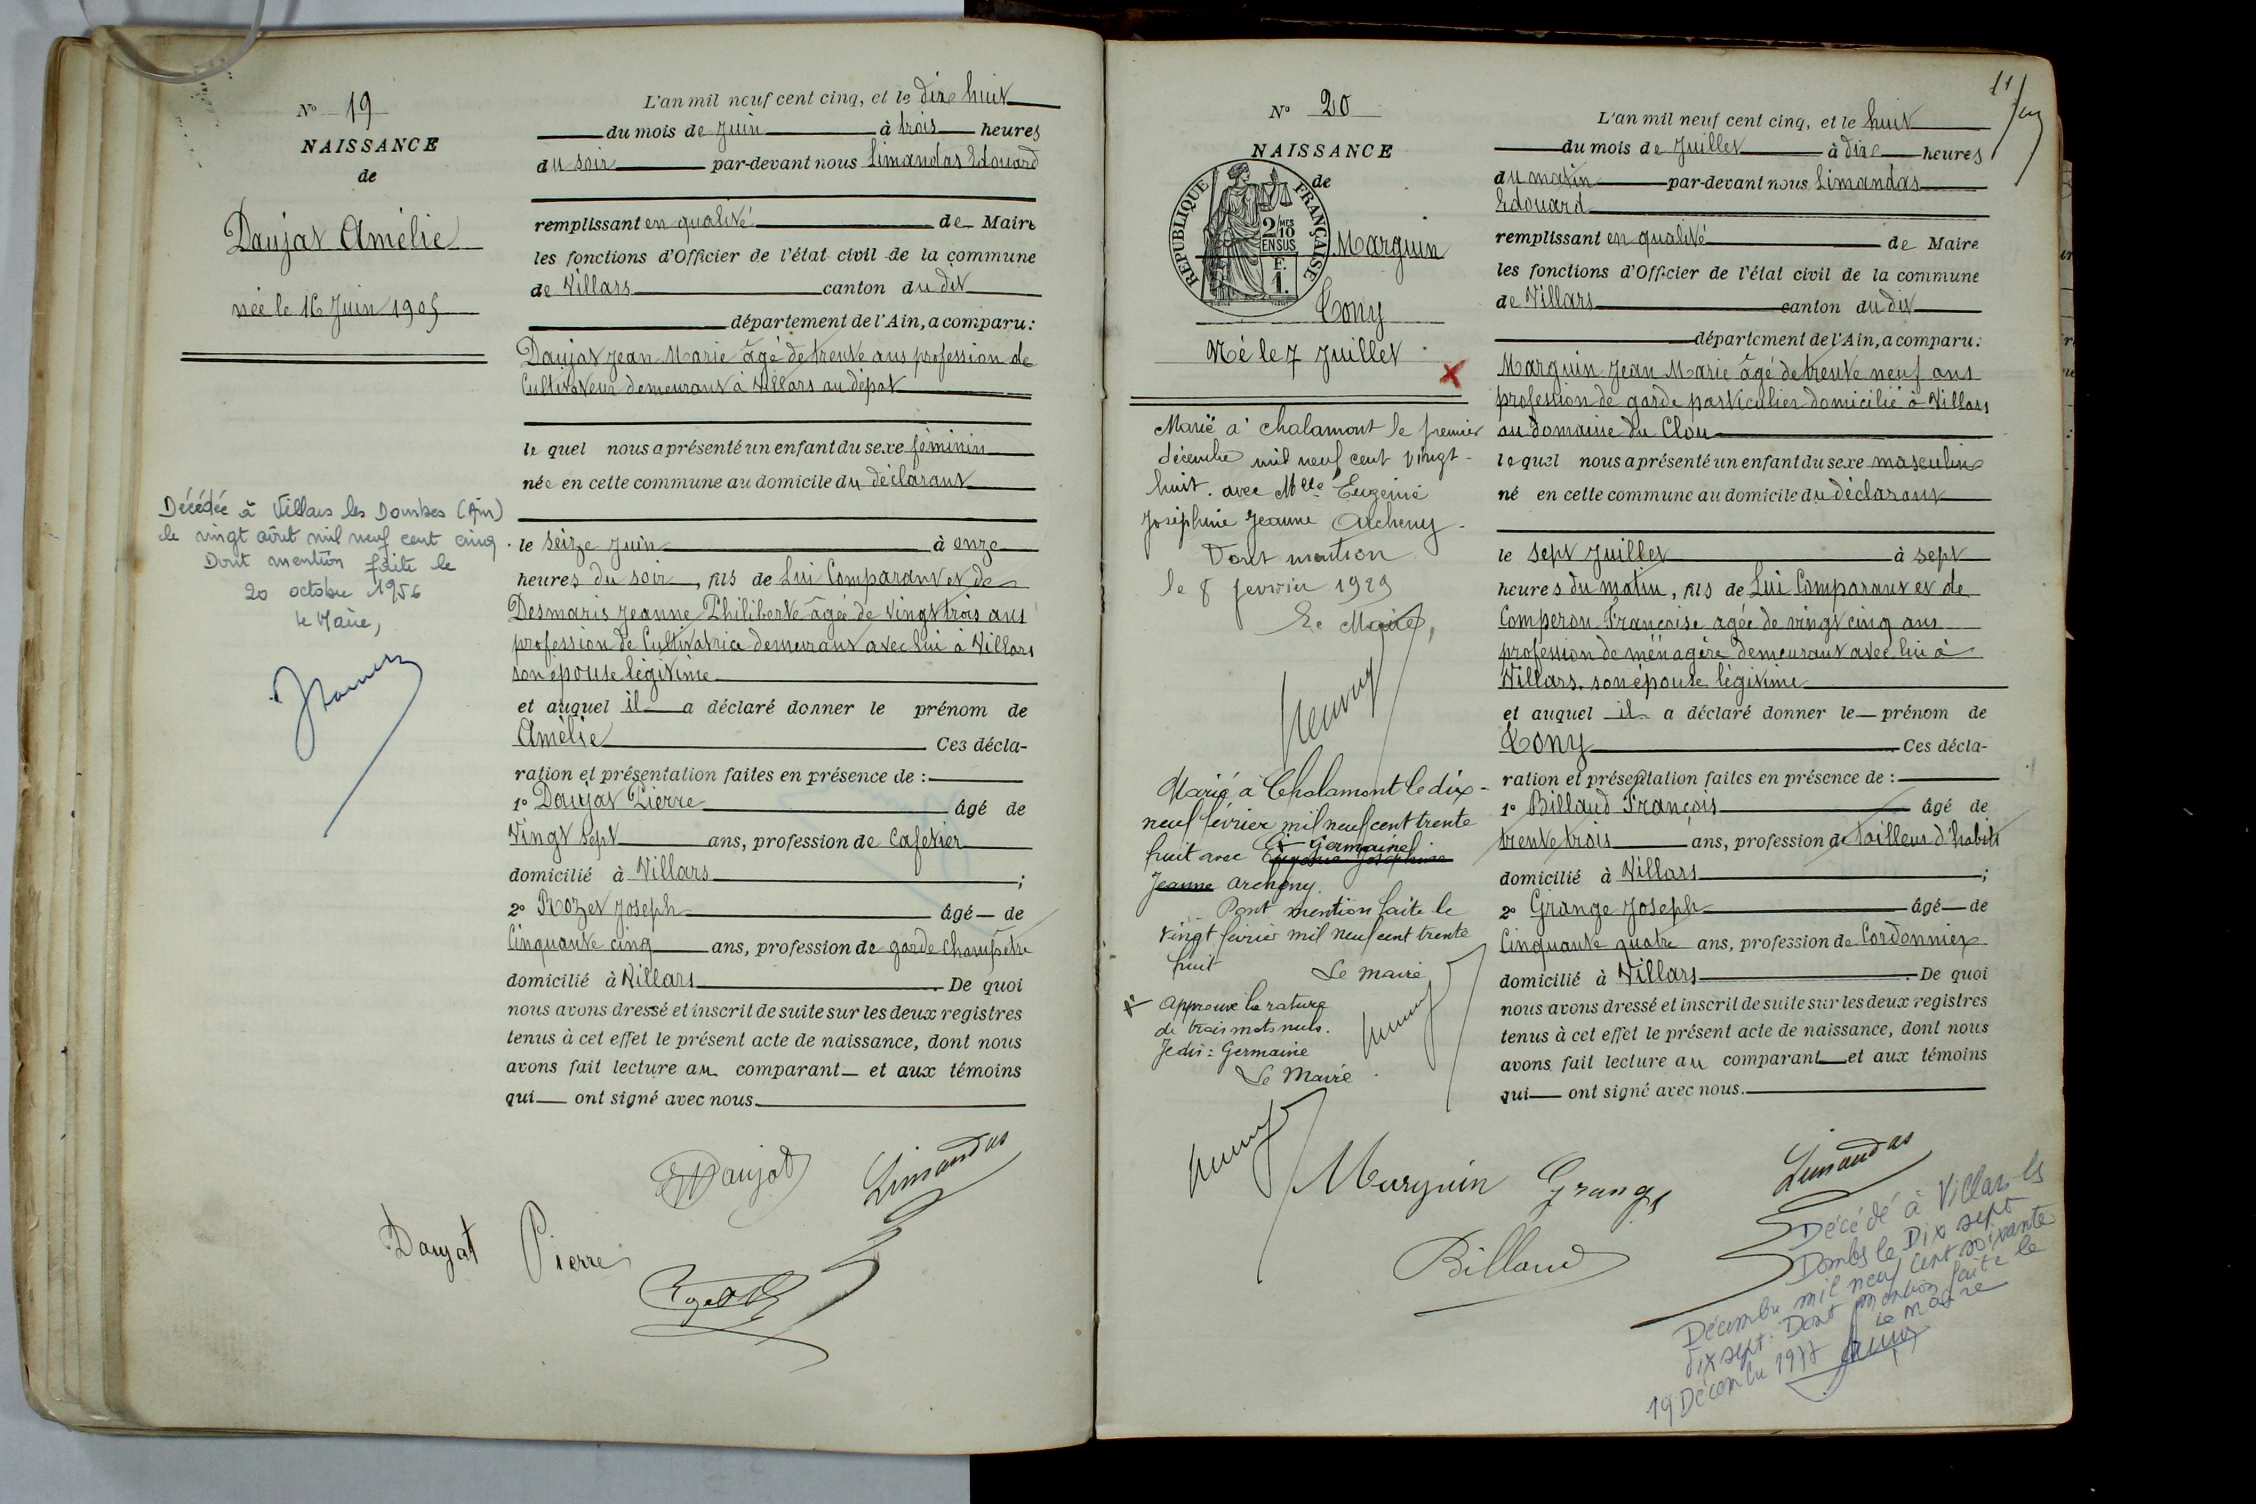 No 19
NAISSANCE
de
Daujat Amélie
née le 16 Juin 1905
Décédée à Villars les Dombes (Ain)
le vingt août mil neuf cent cinq
Dont mention faite le
20 octobre 1956
le Maire,
L'an mil neuf cent cinq, et le dix huit
du mois de Juin à trois heures
du soir par-devant nous Limandas Edouard
remplissant en qualité de Maire
les fonctions d'Officier de l'état civil de la commune
de Villars canton du dit
département de l'Ain, a comparu:
Daujat Jean Marie âgé de trente ans profession de
Cultivateur demeurant à Villars au dépot
le quel nous a présenté un enfant du sexe féminin
née en cette commune au domicile du déclarant
le seize Juin à onze
heures du soir, fils de Lui Comparant et de
Desmaris Jeanne Philiberte âgée de vingt trois ans
profession de Cultivatrice demeurant avec lui à Villars
son épouse légitime
et auquel il a déclaré donner le prénom de
Amélie Ces décla-
ration et présentation faites en présence de :
1o Daujat Pierre âgé de
Vingt sept ans, profession de Cafetier
domicilié à Villars ;
2o Rozet Joseph âgé de
Cinquante cinq ans, profession de garde champêtre
domicilié à Villars De quoi
nous avons dressé et inscrit de suite sur les deux registres
tenus à cet effet le présent acte de naissance, dont nous
avons fait lecture au comparant et aux témoins
qui ont signé avec nous.
Daujat Limandas
Daujat Pierre
11
No 20
NAISSANCE
de
REPUBLIQUE FRANÇAISE
2/10 MES EN SUS
F. 1.
Marguin
Tony
Né le 7 Juillet
Marié à Chalamont le premier
décembre mil neuf cent vingt-
huit. avec Mlle Eugénie
Joséphine Jeanne Archeny.
Dont mention
le 8 fevrier 1929
Le Maire,
Marié à Chalamont le dix-
neuf février mil neuf cent trente
huit avec Germaine Eugénie Joséphine
Jeanne Archeny.
Dont mention faite le
vingt février mil neuf cent trente
huit Le Maire
Approuve la rature
de trois mots nuls.
Je dis : Germaine
Le Maire
L'an mil neuf cent cinq, et le huit
du mois de Juillet à dix heures
du matin par-devant nous Limandas
Edouard
remplissant en qualité de Maire
les fonctions d'Officier de l'état civil de la commune
de Villars canton du dit
département de l'Ain, a comparu:
Marguin Jean Marie âgé de trente neuf ans
profession de garde particulier domicilié à Villars
au domaine du Clou
le quel nous a présenté un enfant du sexe masculin
né en cette commune au domicile du déclarant
le sept Juillet à sept
heures du matin, fils de Lui Comparant et de
Comperon Françoise agée de vingt cinq ans
profession de ménagère demeurant avec lui à
Villars. son épouse légitime
et auquel il a déclaré donner le prénom de
Tony Ces décla-
ration et présentation faites en présence de :
1o Billaud François âgé de
trente trois ans, profession de tailleur d'habits
domicilié à Villars ;
2o Grange Joseph âgé de
Cinquante quatre ans, profession de Cordonnier
domicilié à Villars De quoi
nous avons dressé et inscrit de suite sur les deux registres
tenus à cet effet le présent acte de naissance, dont nous
avons fait lecture au comparant et aux témoins
qui ont signé avec nous.
Marguin Grange Limandas
Billaud
Décédé à Villars les
Dombes le Dix sept
Décembre mil neuf cent soixante
dix sept. Dont mention faite le
19 Décembre 1977 Le Maire